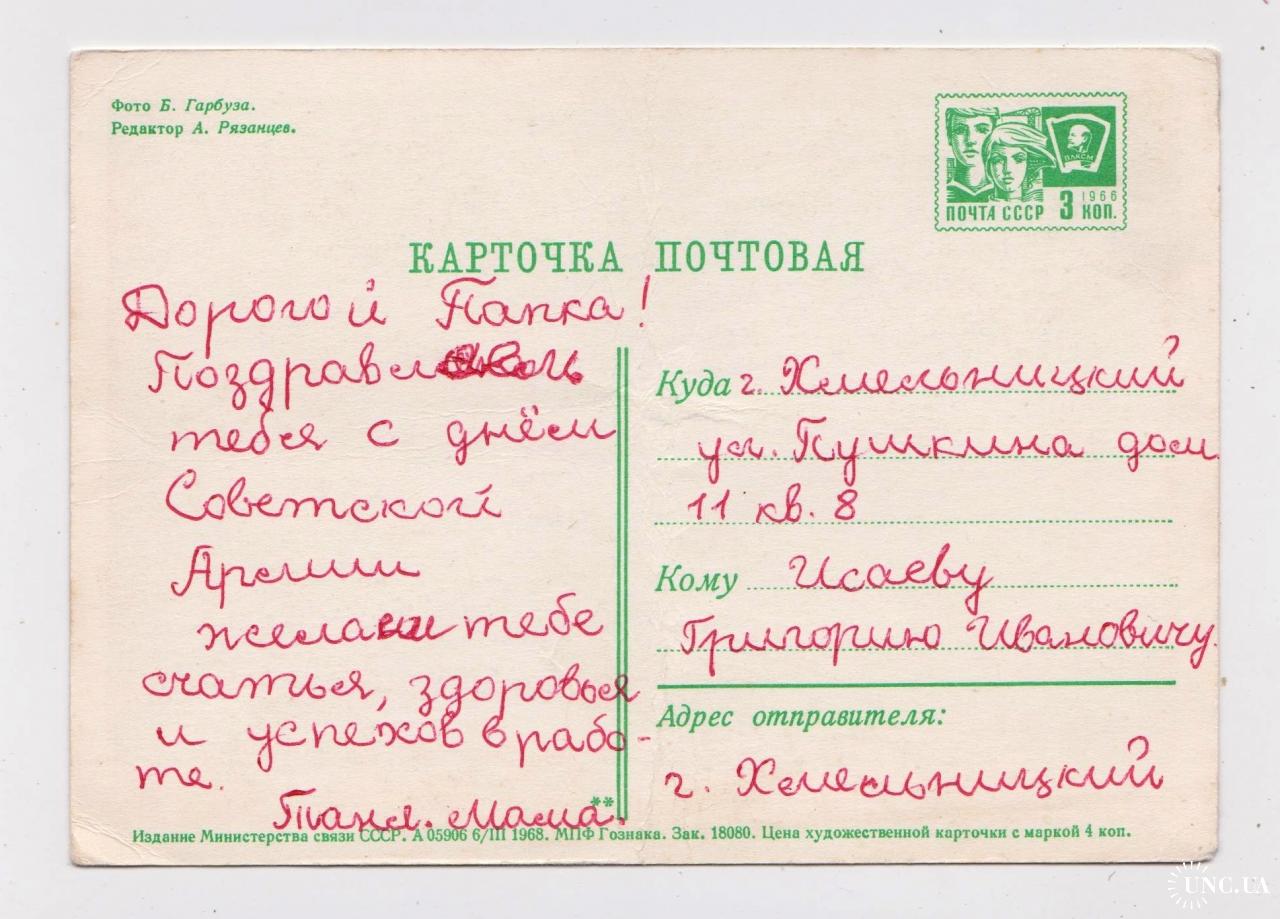 Фото Б. Гарбуза.
Редактор А. Рязанцев.
ВЛКСМ
1966
ПОЧТА СССР 3 КОП.
КАРТОЧКА ПОЧТОВАЯ
Дорогой Папка!
тебя с днём
Советской
Армии
тебе
счатья, здоровья
и успехов в рабо-
те.
Таня. Мама.
Куда г. Хмельницкий
ул. Пушкина дом
11 кв. 8
Кому Исаеву
Григорию Ивановичу.
Адрес отправителя:
г. Хмельницкий
**
Издание Министерства связи СССР. А 05906 6/III 1968. МПФ Гознака. Зак. 18080. Цена художественной карточки с маркой 4 коп.
UNC.UA